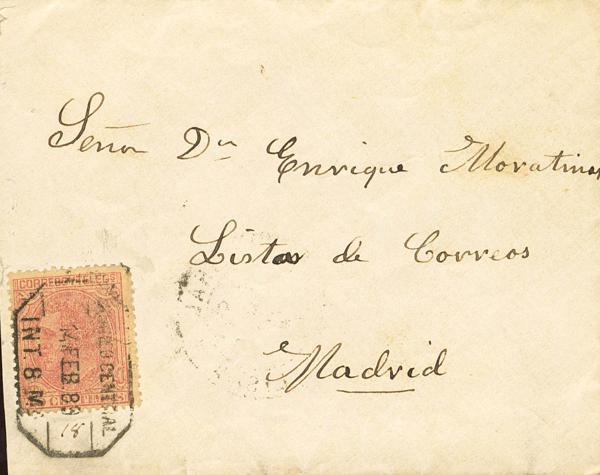 Señor Dn Enrique Moratinos
Listas de Correos
Madrid
CORREOS Y TELEGS
CORREO CENTRAL
14 FEB 89
INT. 8 M
18